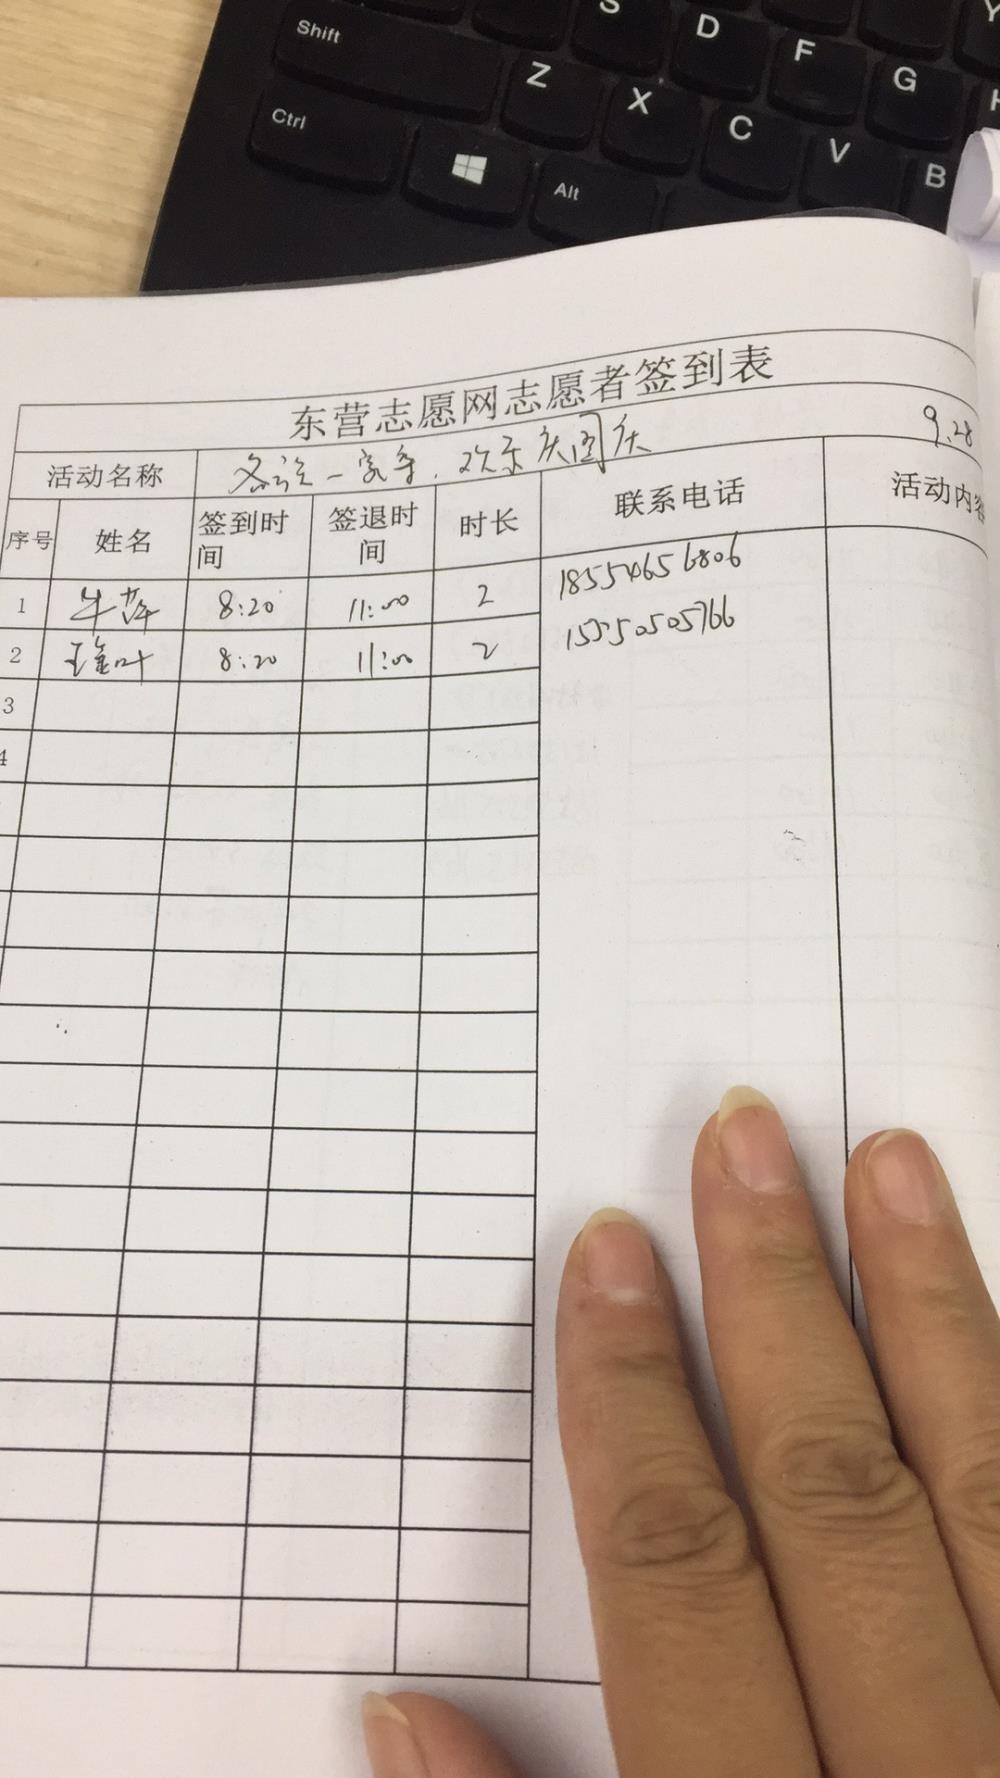 S D F G Y
Shift Z X C V B H
Ctrl Alt
东营志愿网志愿者签到表
9.28
活动名称 各族一家亲.欢乐庆国庆
序号 姓名 签到时间 签退时间 时长 联系电话 活动内容
1 牛萍 8:20 11:00 2 18554656806
2 8:20 11:00 2 15550505766
3
4